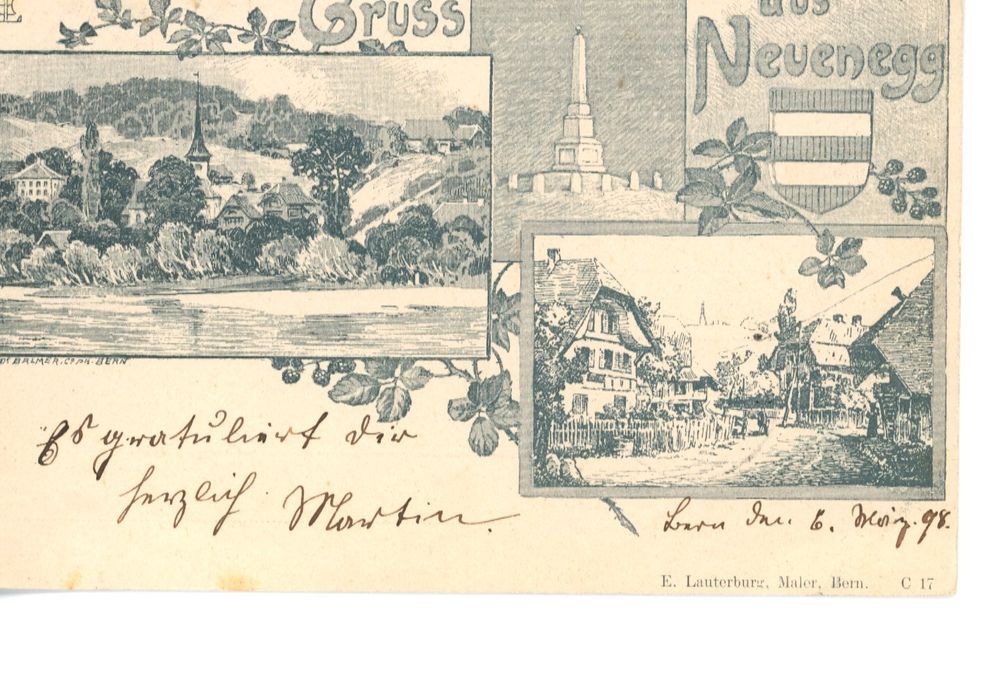 Gruss
aus
Neuenegg
BALMER. CP. PH. BERN
Es gratuliert dir
herzlich Martin.
Bern den 6. März. 98.
E. Lauterburg, Maler, Bern. C 17